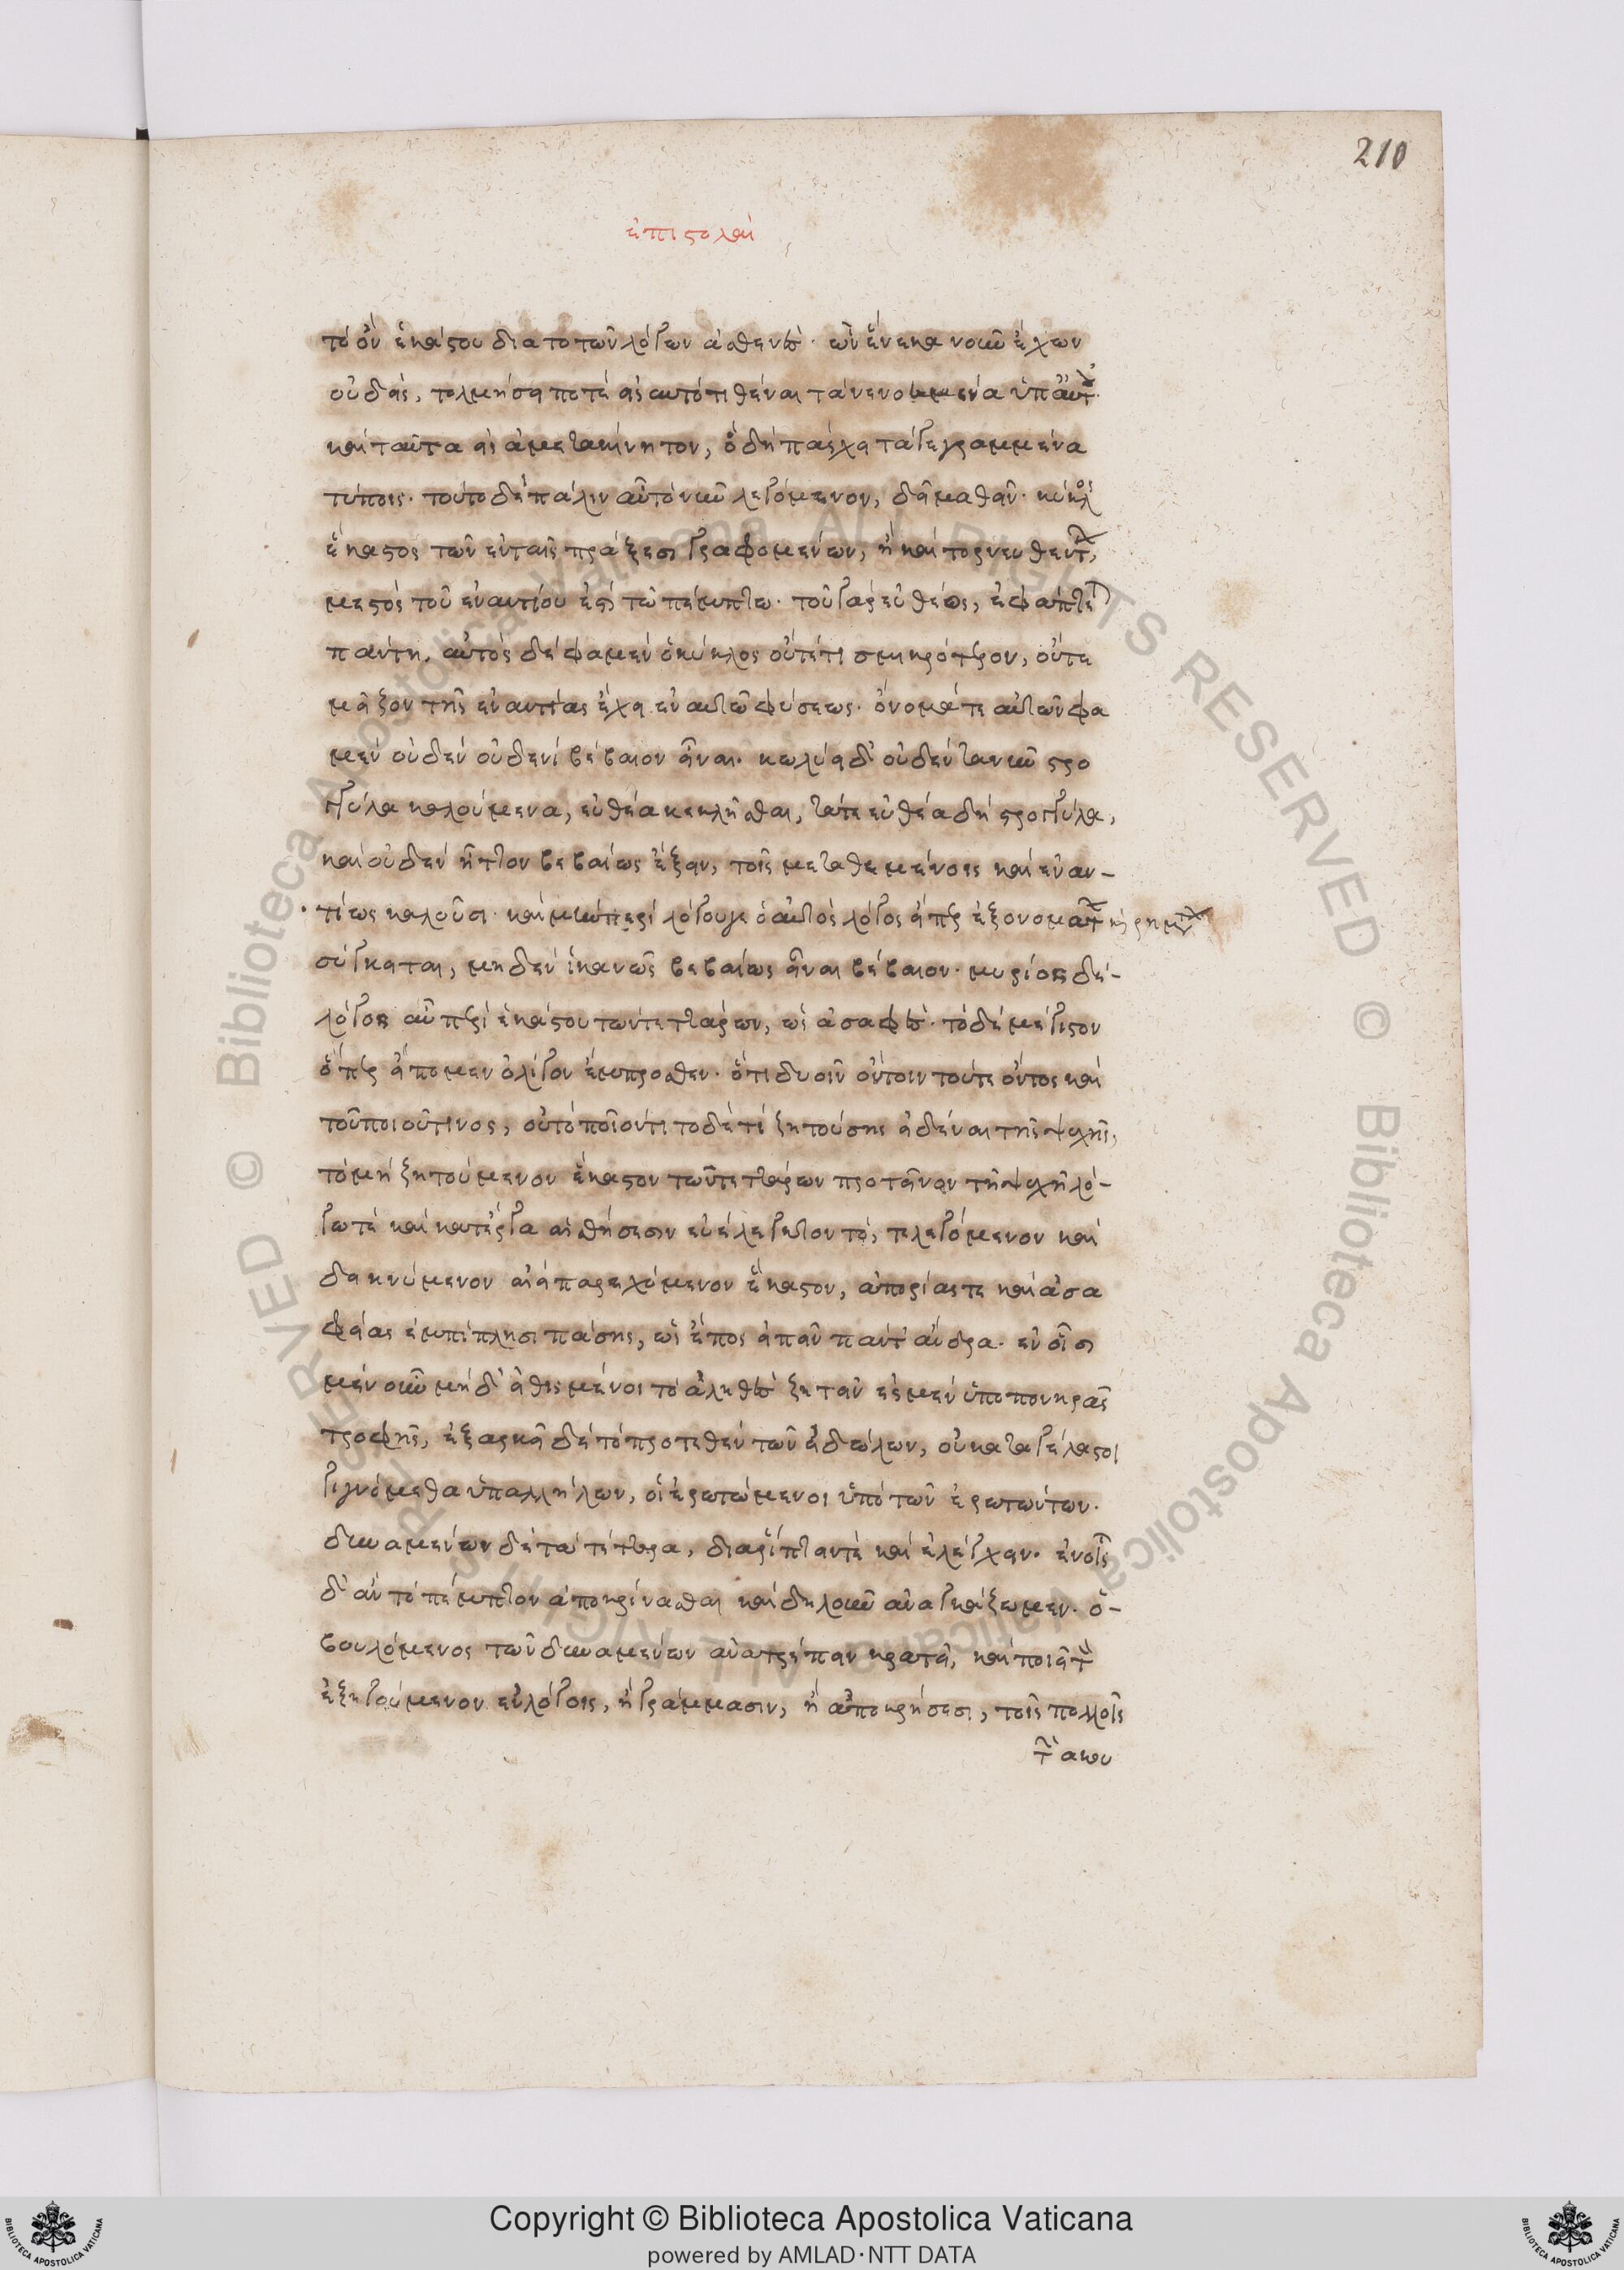 210
ἐπιστολαὶ
τὸ ὂν ἑκάστου διὰ τὸ τῶν λόγων ἀσθενὲς· ὧν ἕνεκα νοῦν ἔχων
οὐδεὶς, τολμήσει ποτὲ εἰς αὐτὸ τιθέναι τὰ νενοημένα ὑπ' αὐτοῦ
καὶ ταῦτα εἰς ἀμετακίνητον, ὃ δὴ πάσχει τὰ γεγραμμένα
τύποις· τοῦτο δὲ πάλιν αὖ τὸ νῦν λεγόμενον, δεῖ μαθεῖν· κύκλος
ἕκαστος τῶν ἐν ταῖς πράξεσι γραφομένων, ἢ καὶ τορνευθέντων,
μεστὸς τοῦ ἐναντίου ἐστὶ τῷ πέμπτῳ· τοῦ γὰρ εὐθέος, ἐφάπτεται
πάντη, αὐτὸς δὲ φαμὲν ὁ κύκλος οὔτέ τι σμικρότερον, οὔτε
μεῖζον τῆς ἐναντίας ἔχει ἐν αὑτῷ φύσεως· ὄνομά τε αὐτῶν φα
μὲν οὐδὲν οὐδενὶ βέβαιον εἶναι· κωλύει δ' οὐδὲν τὰ νῦν στρο
γγύλα καλούμενα, εὐθέα κεκλῆσθαι, τά τε εὐθέα δὴ στρογγύλα,
καὶ οὐδὲν ἧττον βεβαίως ἕξειν, τοῖς μεταθεμένοις καὶ ἐναν-
τίως καλοῦσι· καὶ μὴν περὶ λόγου γε ὁ αὐτὸς λόγος εἴπερ ἐξ ὀνομάτων καὶ ῥημάτων
σύγκειται, μηδὲν ἱκανῶς βεβαίως εἶναι βέβαιον· μυρίος δὲ-
λόγος αὖ περὶ ἑκάστου τῶν τεττάρων, ὡς ἀσαφὲς· τὸ δὲ μέγιστον
ὅπερ εἴπομεν ὀλίγον ἔμπροσθεν· ὅτι δυοῖν ὄντοιν τοῦ τε ὄντος καὶ
τοῦ ποιοῦ τινος, οὐ τὸ ποῖόν τι τὸ δὲ τί ζητούσης εἰδέναι τῆς ψυχῆς,
τὸ μὴ ζητούμενον ἕκαστον τῶν τεττάρων προτεῖνον τῇ ψυχῇ λό-
γῳ τε καὶ κατ' ἔργα αἰσθήσεσιν εὐέλεγκτον τό, τε λεγόμενον καὶ
δεικνύμενον ἀεὶ παρεχόμενον ἕκαστον, ἀπορίας τε καὶ ἀσα
φείας ἐμπίπλησι πάσης, ὡς ἔπος εἰπεῖν πάντ' ἄνδρα· ἐν οἷσι
μὲν οὖν μηδ' εἰθισμένοι τὸ ἀληθὲς ζητεῖν ἐσμὲν ὑπὸ πονηρᾶς
τροφῆς, ἐξαρκεῖ δὲ τὸ προτεθὲν τῶν εἰδώλων, οὐ καταγέλαστοι
γιγνόμεθα ὑπ' ἀλλήλων, οἱ ἐρωτώμενοι ὑπὸ τῶν ἐρωτώντων·
δυναμένων δὲ τὰ τέτταρα, διαρρίπτειν τε καὶ ἐλέγχειν· ἐν οἷς
δ' ἂν τὸ πέμπτον ἀποκρίνασθαι καὶ δηλοῦν ἀναγκάζωμεν· ὁ-
βουλόμενος τῶν δυναμένων ἀνατρέπειν κρατεῖ, καὶ ποιεῖ τὸν
ἐξηγούμενον ἐν λόγοις, ἢ γράμμασιν, ἢ ἀποκρίσεσι, τοῖς πολλοῖς
τῶν ἀκου
Copyright © Biblioteca Apostolica Vaticana
powered by AMLAD·NTT DATA